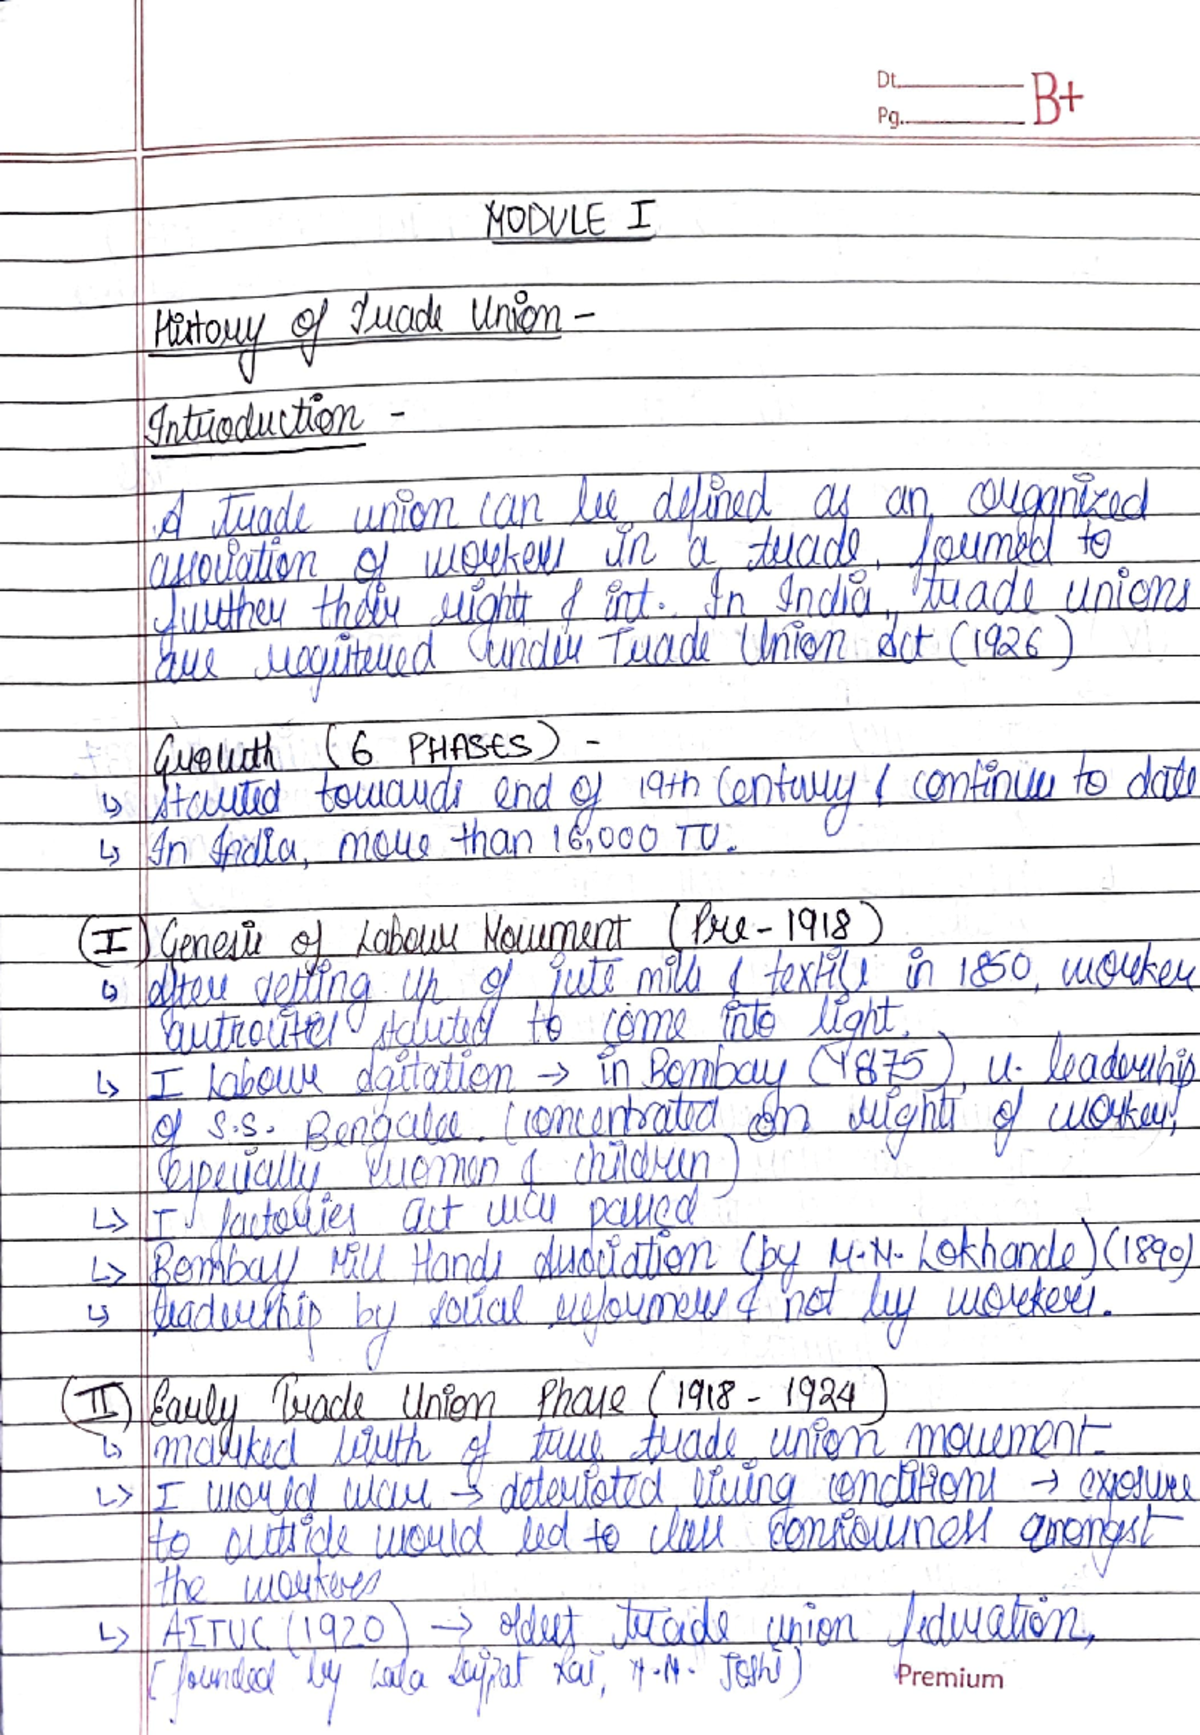 Dt.
Pg.
B+
MODULE I
History of Trade Union -
Introduction -
A trade union can be defined as an organized
association of workers in a trade, formed to
further their rights & int. In India, trade unions
are registered under Trade Union Act (1926)
Growth (6 PHASES) -
↳ started towards end of 19th Century & continues to date
↳ In India, more than 16,000 TU.
(I) Genesis of Labour Movement (Pre-1918)
↳ After setting up of jute mills & textile in 1850, worker
atrocities started to come into light.
↳ I Labour Agitation → in Bombay (1875), u. leadership
of S.S. Bengalee. (concentrated on rights of workers,
especially women & children)
↳ I factories act was passed
↳ Bombay Mill Hands Association (by M.N. Lokhande) (1890)
↳ leadership by social reformers & not by workers.
(II) Early Trade Union Phase (1918 - 1924)
↳ marked birth of true trade union movement.
↳ I world war → deteriorated living conditions → exposure
to outside world led to class consciousness amongst
the workers
↳ AITUC (1920) → oldest trade union federation,
(founded by Lala Lajpat Rai, N.M. Joshi)
Premium